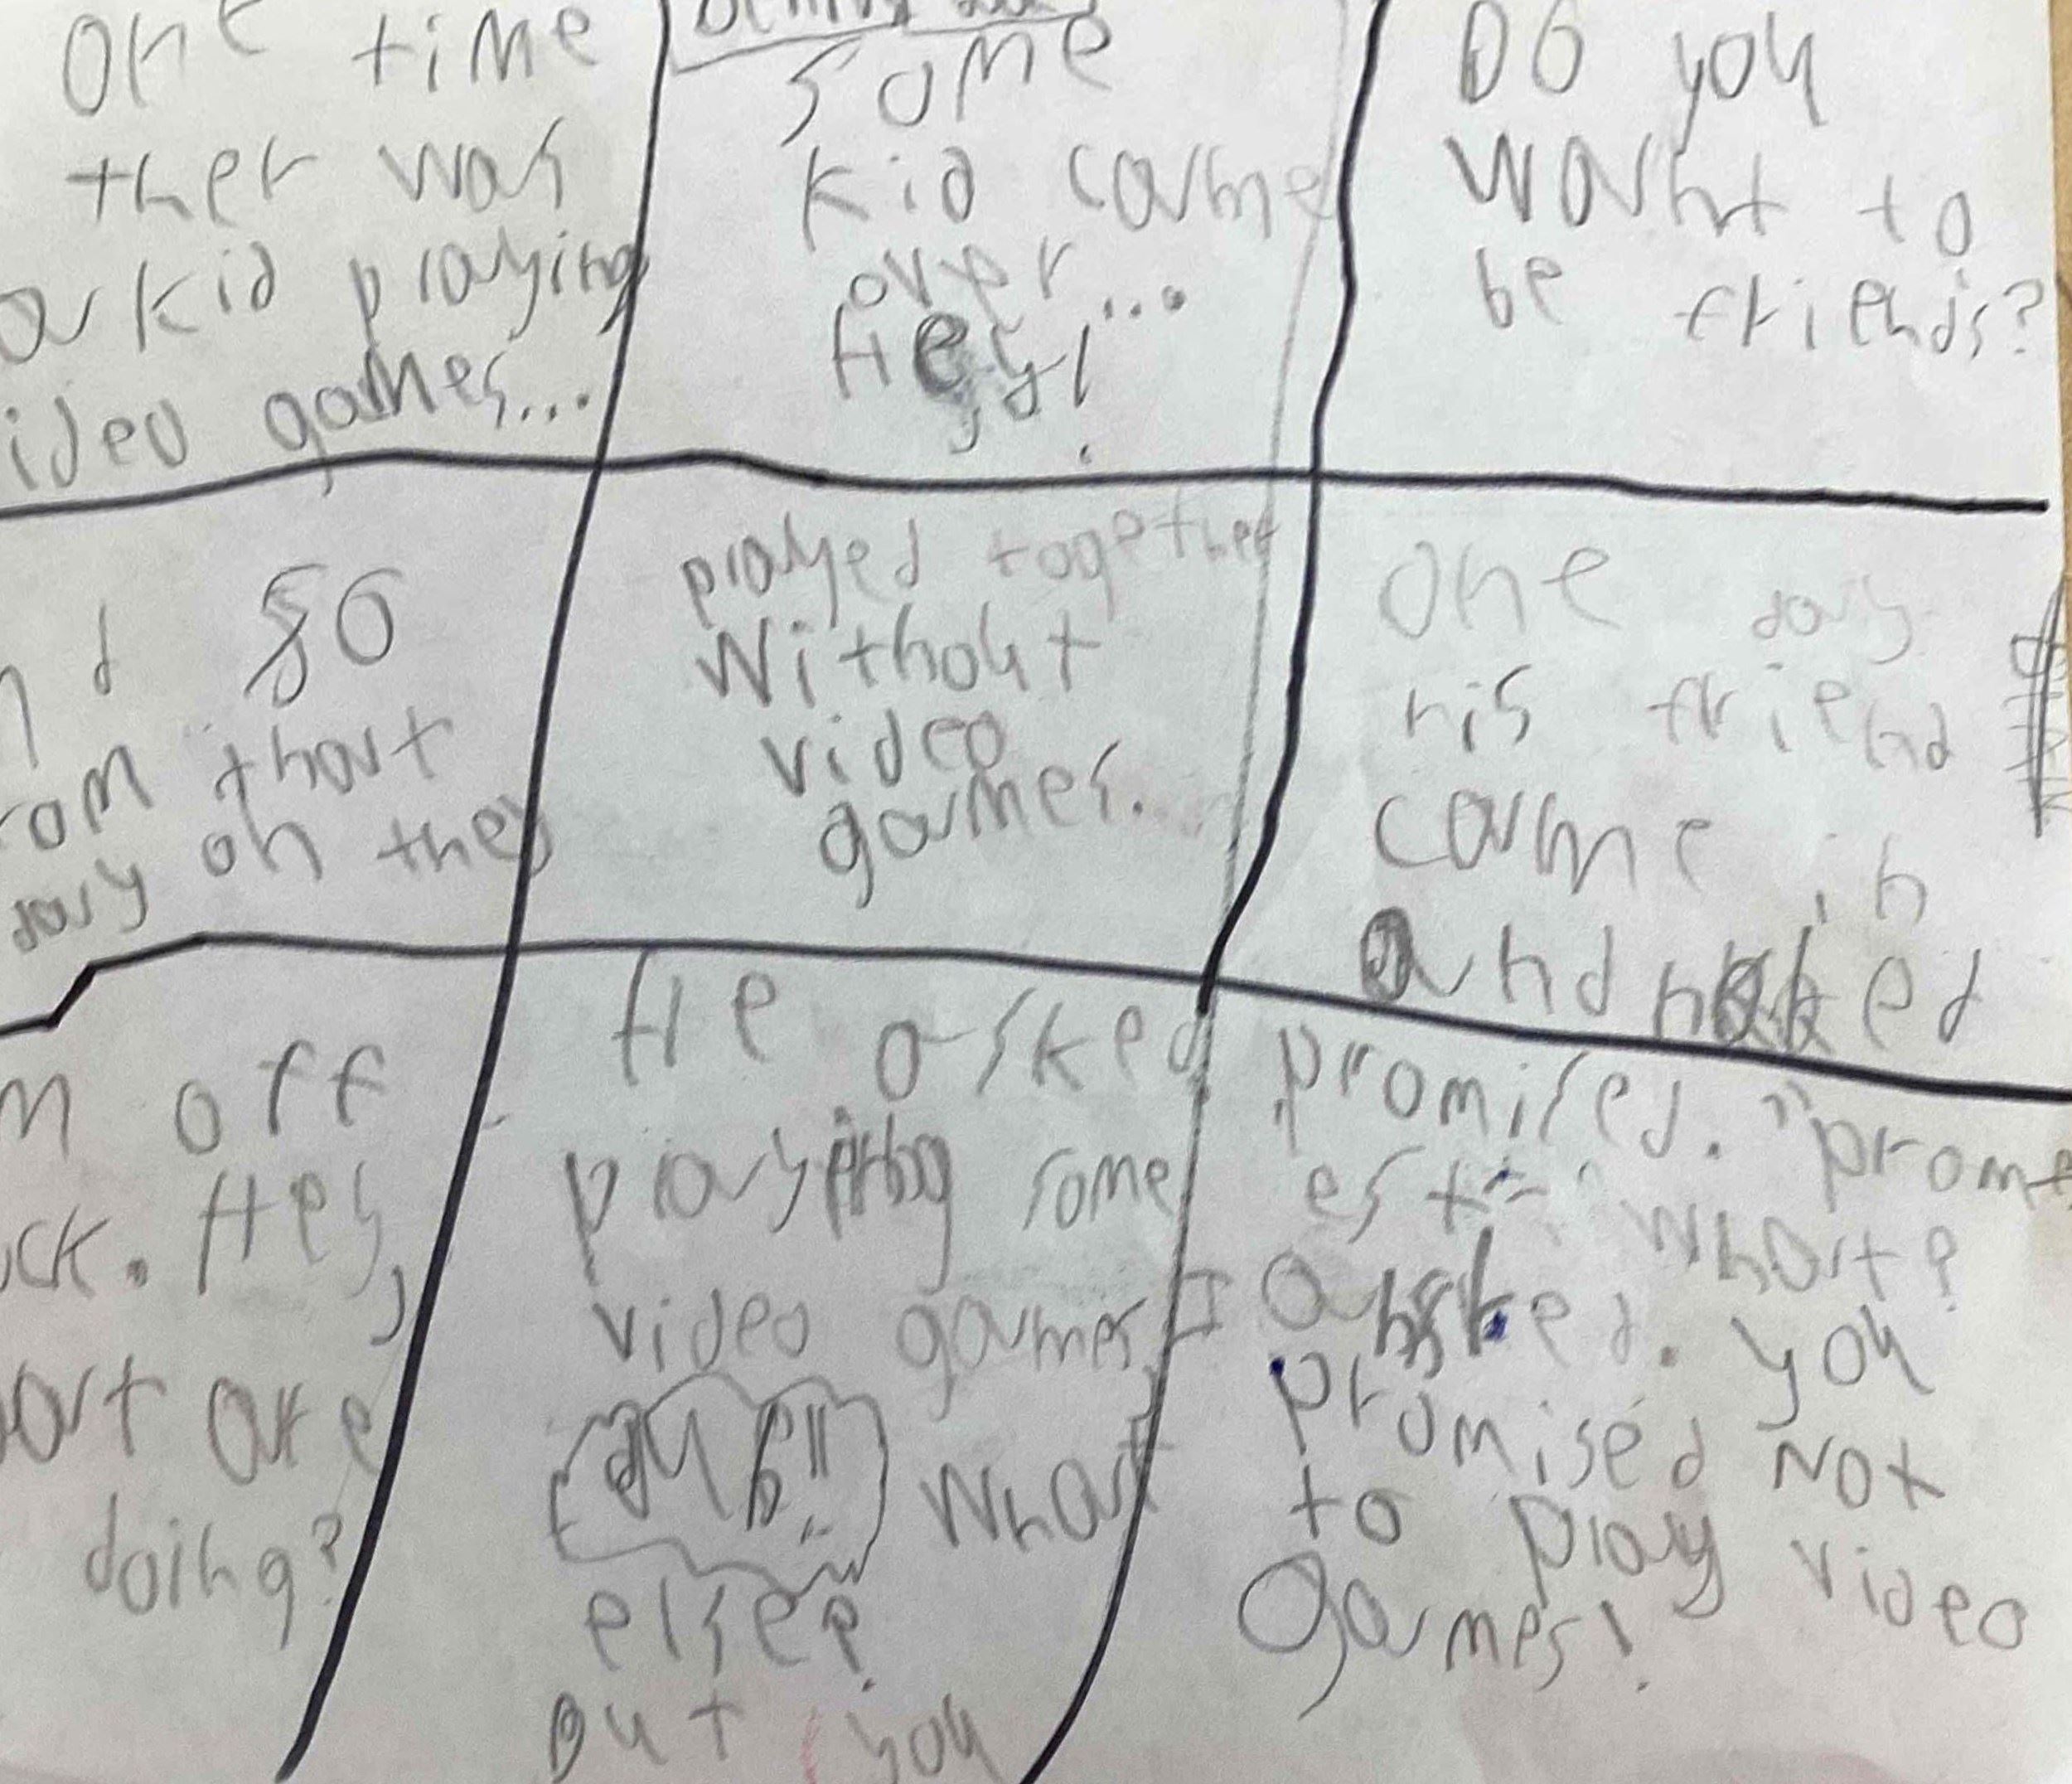 one time
ther was
a kid playing
ideo games...
some
kid came
over...
Hey!
DO you
want to
be friends?
nd so
rom that
day on they
played together
Without
video
games.
One day
his friend
came in
and
m off
ck. Hey,
at are
doing?
He asked
playing some
video games, I
What
else?
But you
promised. "prom
est" what?
asked. you
promised Not
to play video
Games!